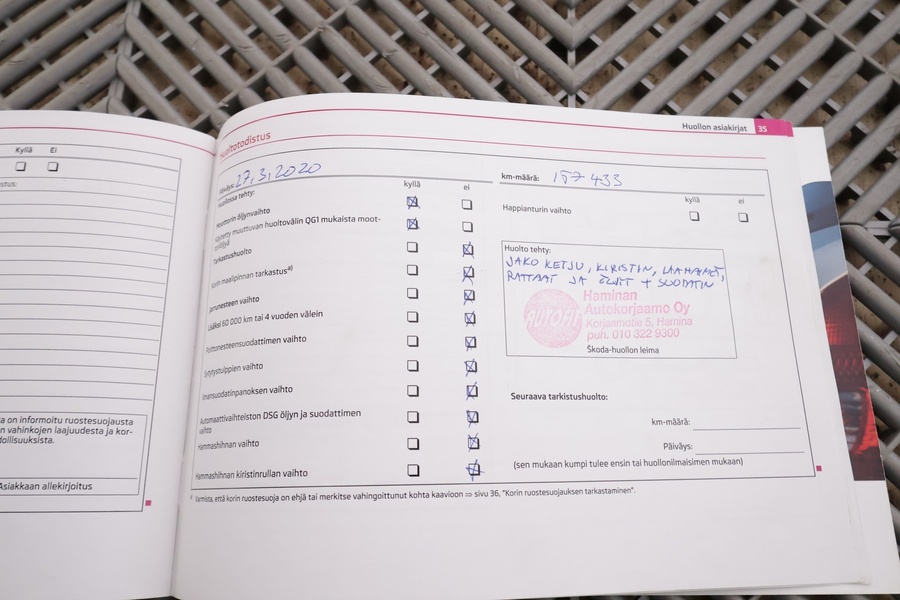 Kyllä Ei
Huollon asiakirjat 35
Huoltotodistus
Päiväys: 27.3.2020
km-määrä: 157 433
Huollossa tehty:
kyllä ei
kyllä ei
Moottorin öljynvaihto
Käytetty muuttuvan huoltovälin QG1 mukaista moot-
toriöljyä
Tarkastushuolto
Korin maalipinnan tarkastus a)
Jarrunesteen vaihto
Lisäksi 60 000 km tai 4 vuoden välein
Polttonesteensuodattimen vaihto
Sytytystulppien vaihto
Ilmansuodatinpanoksen vaihto
Automaattivaihteiston DSG öljyn ja suodattimen
vaihto
Hammashihnan vaihto
Hammashihnan kiristinrullan vaihto
Happianturin vaihto
Huolto tehty:
JAKO KETJU, KIRISTIN, LAAHAIMET,
RATTAAT JA ÖLJYT + SUODATIN
AUTOFIT
Haminan
Autokorjaamo Oy
Korjaamotie 5, Hamina
puh. 010 322 9300
Škoda-huollon leima
Seuraava tarkistushuolto:
km-määrä:
Päiväys:
(sen mukaan kumpi tulee ensin tai huollonilmaisimen mukaan)
a) Varmista, että korin ruostesuoja on ehjä tai merkitse vahingoittunut kohta kaavioon ⇒ sivu 36, "Korin ruostesuojauksen tarkastaminen".
a on informoitu ruostesuojausta
n vahinkojen laajuudesta ja kor-
dollisuuksista.
Asiakkaan allekirjoitus